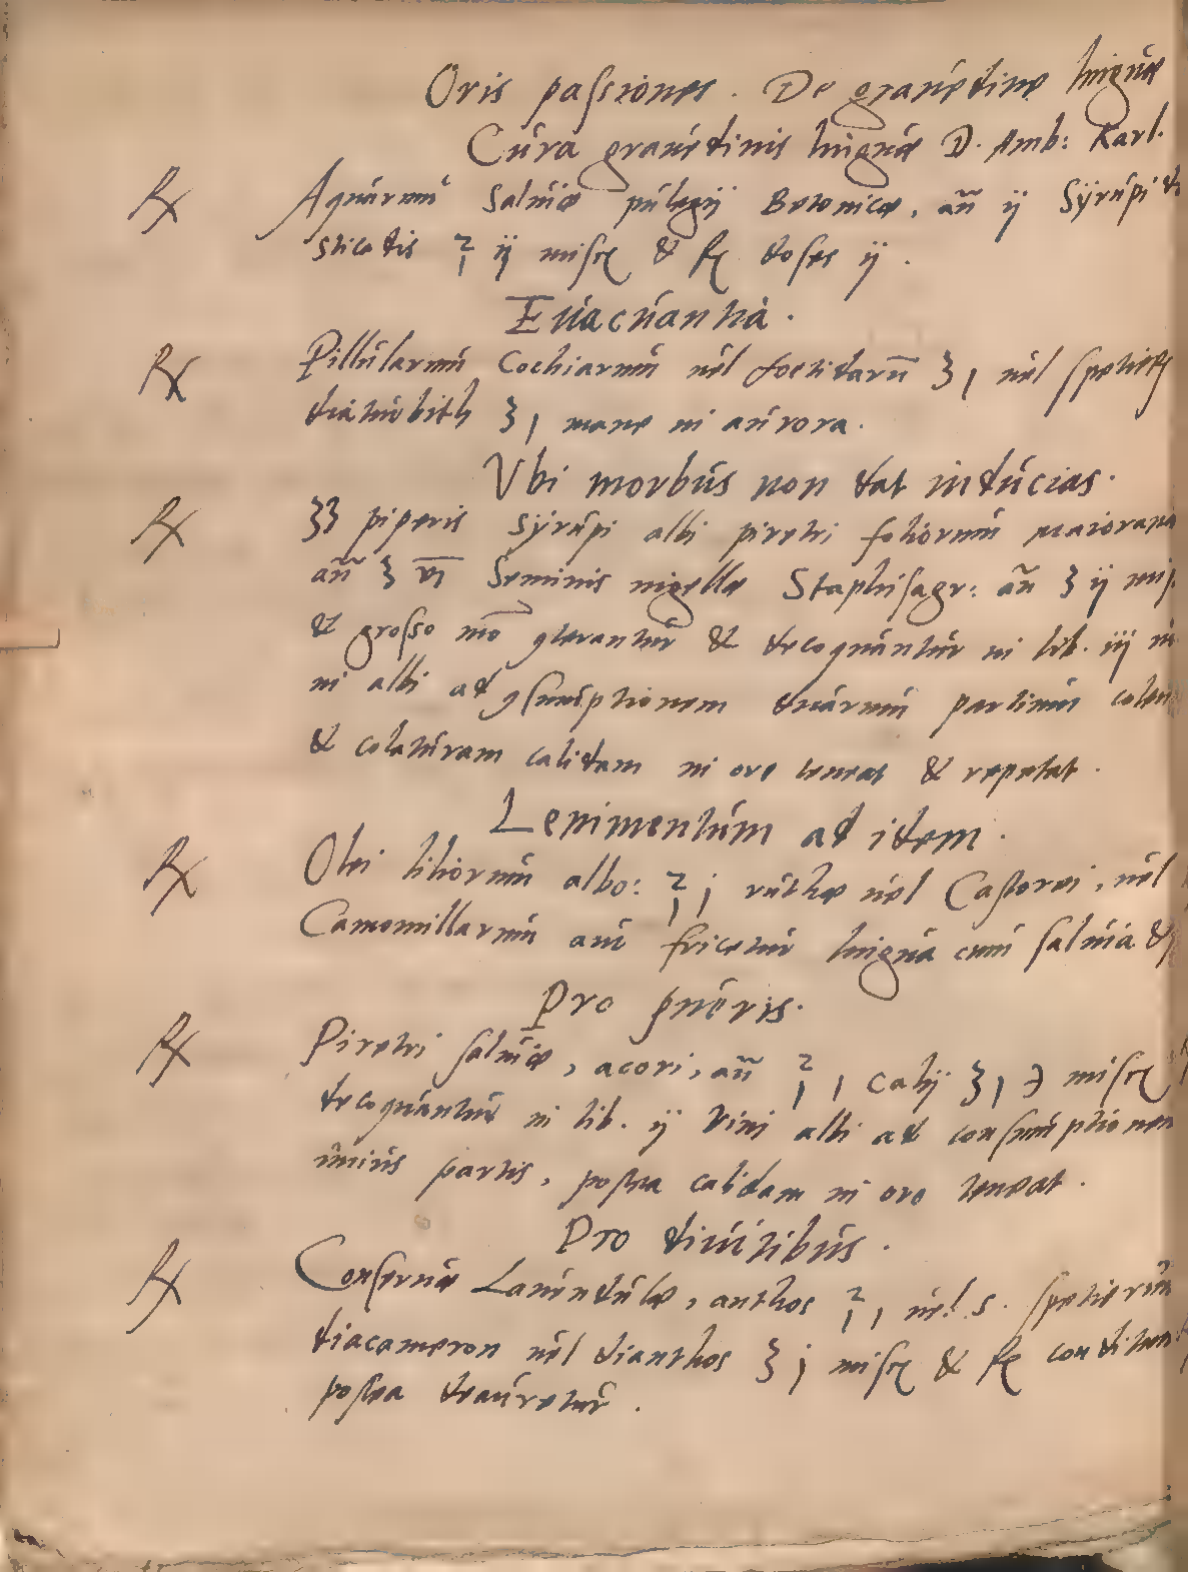 Oris passiones. De grauedine linguæ
Cura grauedinis linguæ D. Amb: Karl.
℞ Aquarum Saluiæ pulegij Betonicæ, añ ij Syrupi
sticadis ℥ ij misce & f doses ij.
Euacuantia.
℞ Pillularum Cochiarum uel foetidarũ ʒ j uel spetierũ
diaturbith ʒ j mane in aurora.
Vbi morbus non dat inducias.
℞ ʒʒ piperis Syrupi albi piretri foliorum maioranæ
añ ʒ vj Seminis nigellæ Staphisagr: añ ʒ ij
& grosso mō ꝯterantur & decoquantur in lib. iij
ni albi ad ꝯsumptionem duarum partium
& colaturam calidam in ore teneat & repetat.
Lenimentum ad idem.
℞ Olei liliorum albo: ℥ j ruthæ uel Castorei, uel
Camomillarum aut fricetur lingua cum saluia &
Pro pueris.
℞ Piretri saluiæ, acori, añ ℥ j calij ʒ j ℈ misce
decoquantur in lib. ij vini albi ad consumptionem
unius partis, postea calidam in ore teneat.
Pro diuitibus.
℞ Conseruæ Lauendulæ, anthos ℥ j, uel s. spetierum
diacameron uel dianthos ʒ j misce & f conditum
postea deauretur.